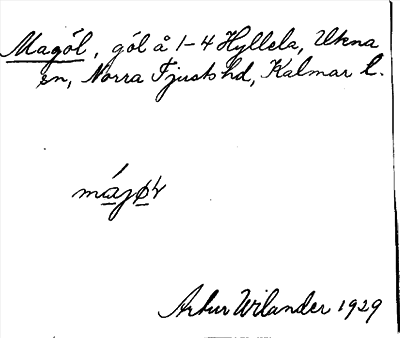 Magöl, göl å 1-4 Hyllela, Ukna
sn, Norra Tjusts hd, Kalmar l.
májø̀r
Artur Wilander 1929